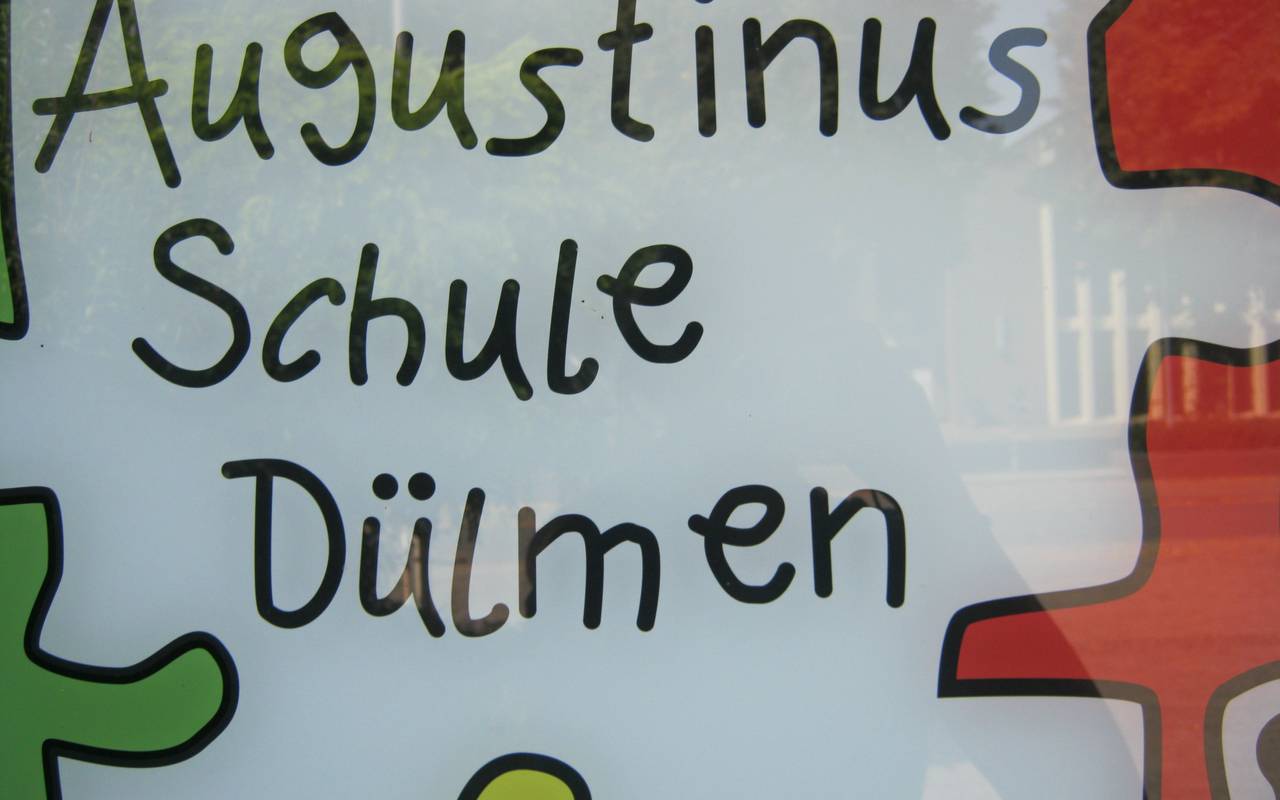 Augustinus
Schule
Dülmen